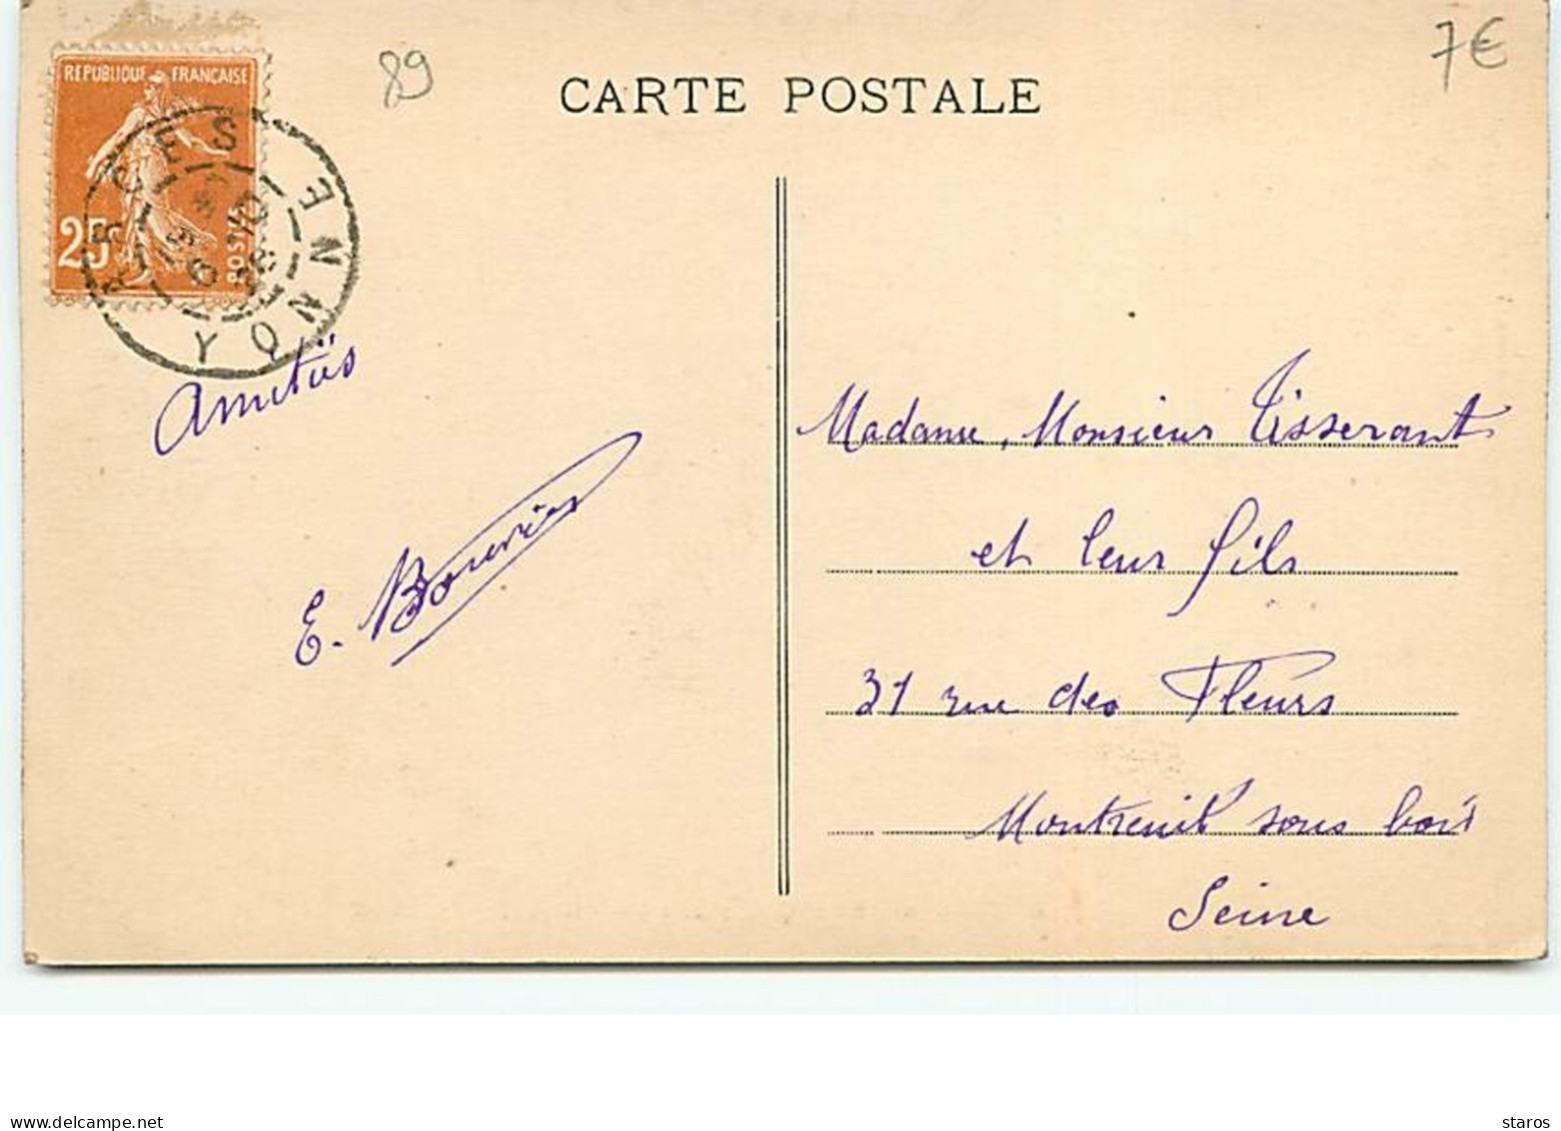 REPUBLIQUE FRANCAISE
25c
POSTES
RCES
YONNE
89
7€
CARTE POSTALE
Amitiés
E. Bouvier
Madame, Monsieur Tisserant
et leur fils
31 rue des Fleurs
Montreuil sous bois
Seine
delcampe.net
staros